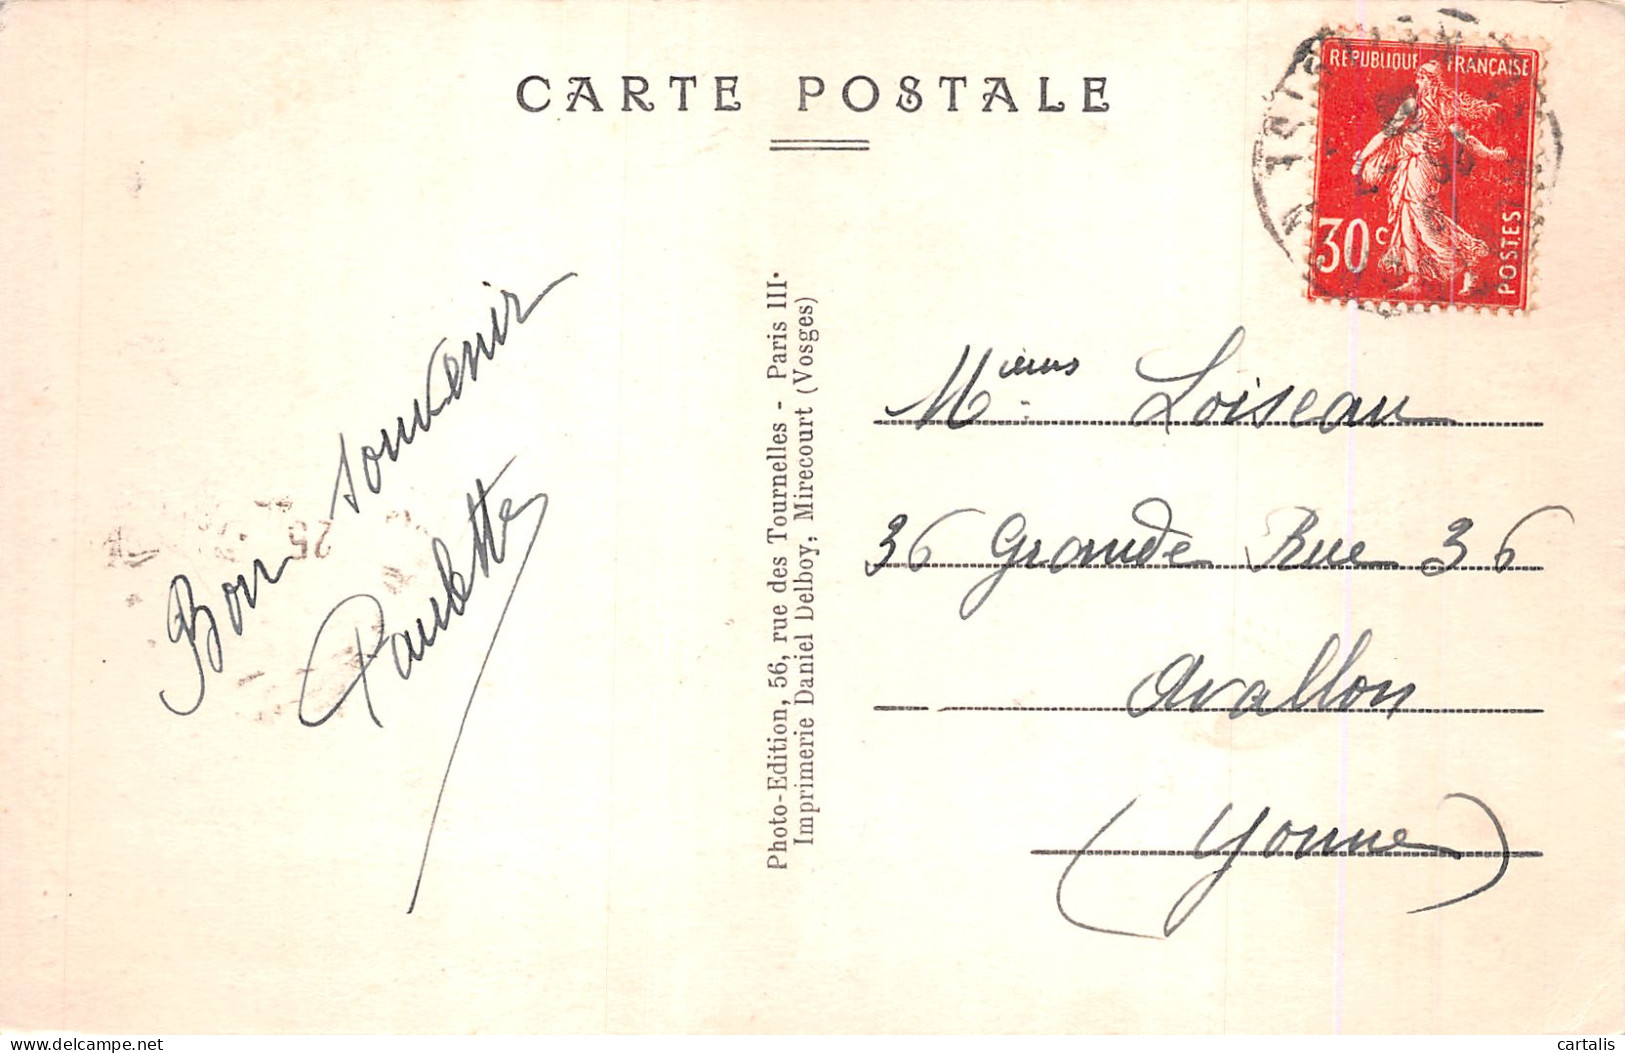 CARTE POSTALE
RÉPUBLIQUE FRANÇAISE
30 c
POSTES
Bon souvenir
Paulette
Photo-Edition, 56, rue des Tournelles - Paris III.
Imprimerie Daniel Delboy, Mirecourt (Vosges)
Mieurs Loiseau
36 Grande Rue 36
Avallon
(Yonne)
25
delcampe.net
cartalis